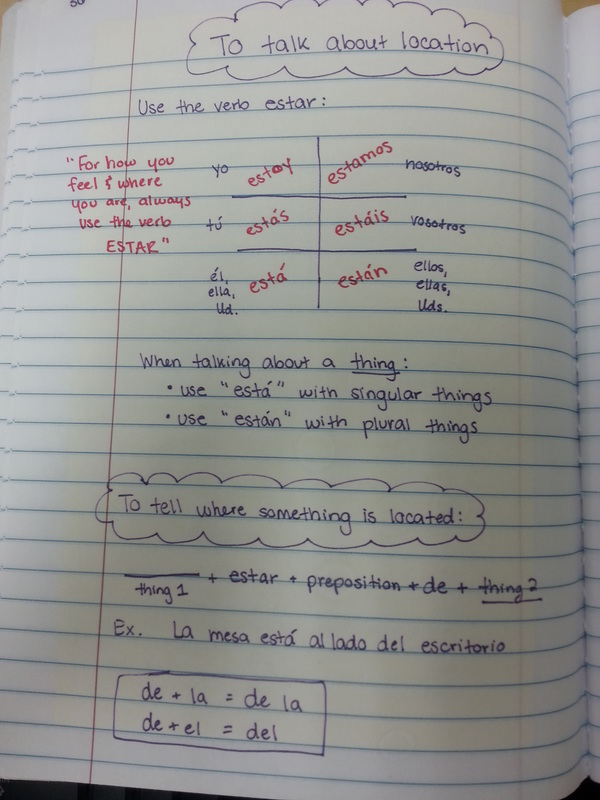 To talk about location
Use the verb estar:
"For how you
feel & where
you are, always
use the verb
ESTAR"
yo estoy estamos nosotros
tú estás estáis vosotros
él,
ella,
Ud.
está están
ellos,
ellas,
Uds.
When talking about a thing:
• use "está" with singular things
• use "están" with plural things
To tell where something is located:
thing 1 + estar + preposition + de + thing 2
Ex. La mesa está al lado del escritorio
de + la = de la
de + el = del